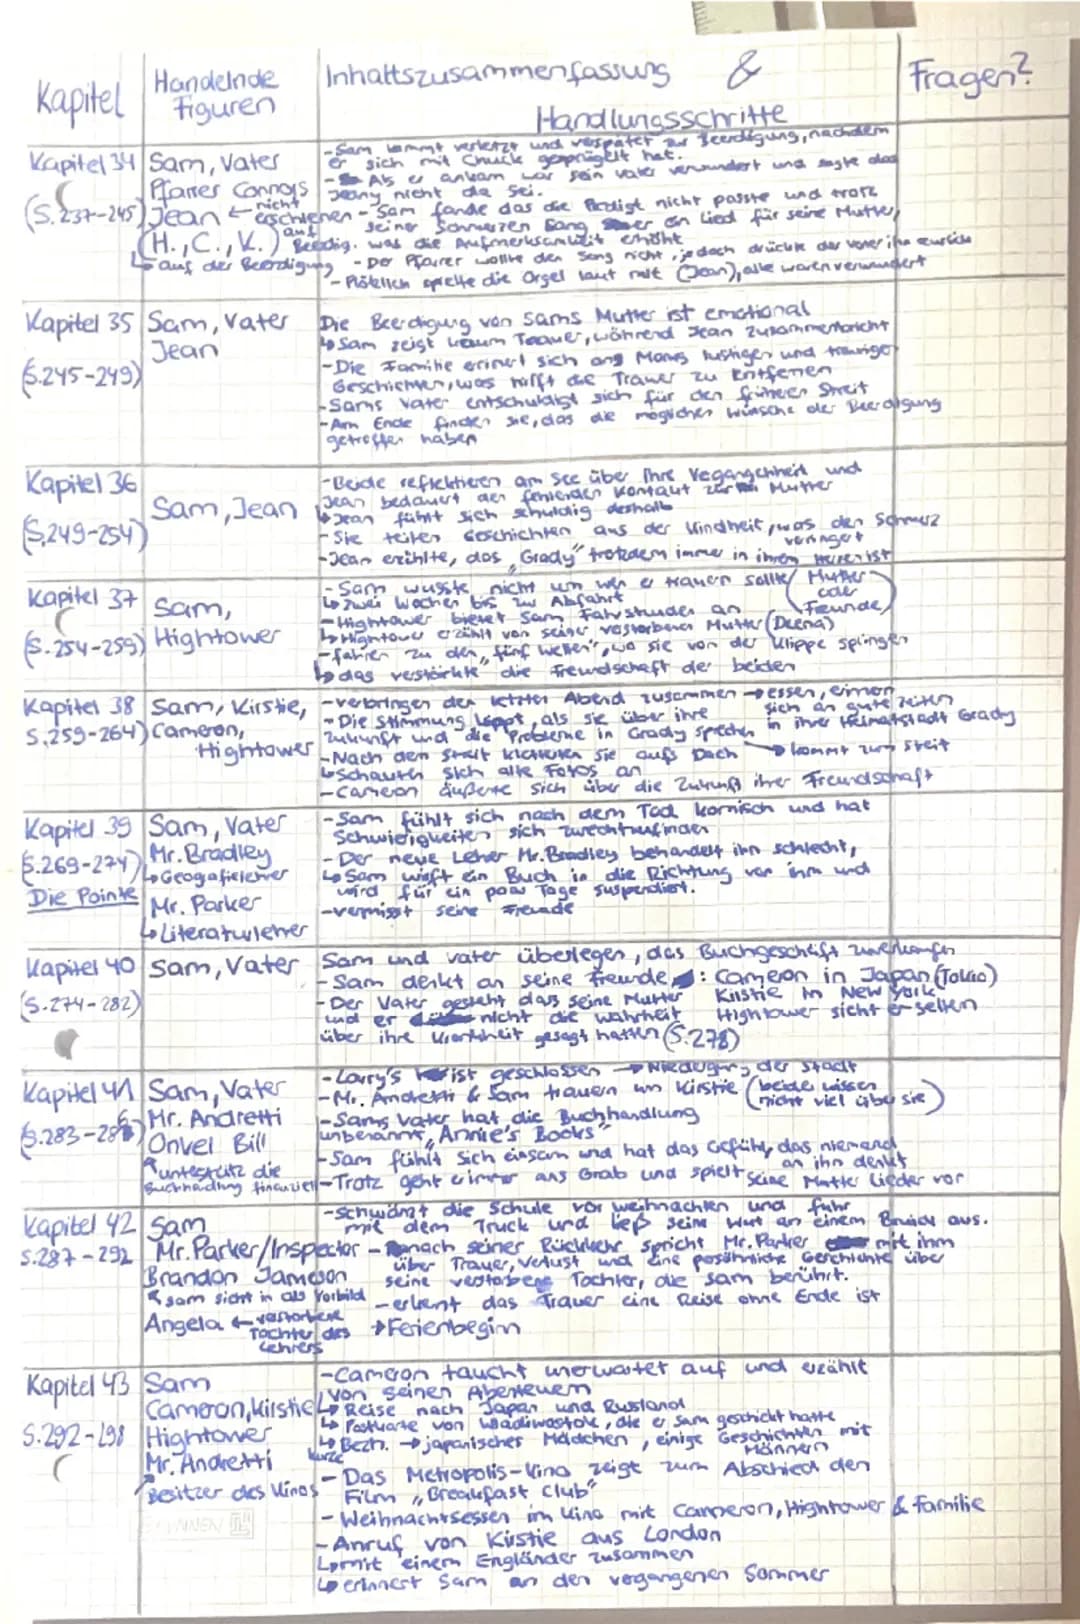 Kapitel
Handelnde Figuren
Inhaltszusammenfassung &
Handlungsschritte
Fragen?
Kapitel 34
(S. 237-245)
Sam, Vater
Pfarrer Connors
Jean ← nicht erschienen auf Beerdig.
(H., C., K.)
↳ auf der Beerdigung
- Sam kommt verletzt und verspätet zur Beerdigung, nachdem
er sich mit Chuck geprügelt hat.
- Als er ankam war sein Vater verwundert und sagte das
Jeany nicht da sei.
- Sam fande das die Predigt nicht passte und trotz
seiner Schmerzen sang er ein Lied für seine Mutter,
was die Aufmerksamkeit erhöht
- Der Pfarrer wollte den Song nicht, jedoch drückte der Vater ihn zurück
- Plötzlich spielte die Orgel laut mit (Jean), alle waren verwundert
Kapitel 35
(S. 245-249)
Sam, Vater
Jean
Die Beerdigung von Sams Mutter ist emotional
↳ Sam zeigt kaum Trauer, während Jean zusammenbricht
- Die Familie erinert sich ang Moms lustigen und traurigen
Geschichten, was hilft die Trauer zu Entfernen
- Sams Vater entschuldigt sich für den früheren Streit
- Am Ende finden sie, das die möglichen Wünsche der Beerdigung
getroffen haben
Kapitel 36
(S. 249-254)
Sam, Jean
- Beide reflektieren am See über Ihre Vegangenheit und
Jean bedauert den fehlenden Kontakt zur Mutter
↳ Jean fühlt sich schuldig deshalb
- Sie teilen Geschichten aus der Kindheit, was den Schmerz
veringert
- Jean erzählte, das „Grady" trotzdem immer in ihrem Herzen ist
Kapitel 37
(S. 254-259)
Sam,
Hightower
- Sam wusste nicht um wen er trauern sollte (Mutter oder Freunde)
↳ Zwei Wochen bis zur Abfahrt
- Hightower bietet Sam Fahrstunden an
↳ Hightower erzählt von seiner verstorbenen Mutter (Deena)
- fahren zu den „fünf Wellen", wo sie von der Klippe springen
↳ das verstärkte die Freundschaft der beiden
Kapitel 38
S. 259-264)
Sam, Kirstie,
Cameron,
Hightower
- verbringen den letzten Abend zusammen → essen, erinnern
sich an gute Zeiten
- Die Stimmung kippt, als sie über ihre
Zukunft und die Probleme in Grady sprechen
in ihrer Heimatstadt Grady
→ kommt zum Streit
- Nach dem Streit kletterten sie aufs Dach
↳ schauten sich alte Fotos an
- Cameron äußerte sich über die Zukunft ihrer Freundschaft
Kapitel 39
(S. 269-274)
Die Pointe
Sam, Vater
Mr. Bradley
↳ Geografielehrer
Mr. Parker
↳ Literaturlehrer
- Sam fühlt sich nach dem Tod komisch und hat
Schwierigkeiten sich zurechtzufinden
- Der neue Lehrer Mr. Bradley behandelt ihn schlecht,
↳ Sam wirft ein Buch in die Richtung von ihm und
wird für ein paar Tage suspendiert.
- vermisst seine Freunde
Kapitel 40
(S. 274-282)
Sam, Vater
Sam und Vater überlegen, das Buchgeschäft zu verkaufen
- Sam denkt an seine Freunde : Cameron in Japan (Tokio)
Kirstie in New York
Hightower sieht er selten
- Der Vater gesteht dass seine Mutter
und er nicht die Wahrheit
über ihre Krankheit gesagt hatten (S. 278)
Kapitel 41
Sam, Vater
Mr. Andretti
Onvel Bill
↖ unterstütz die
Buchhandlung finanziell
- Larry's ist geschlossen → Niedergang der Stadt
- Mr. Andretti & Sam trauern um Kirstie (beide wissen
nicht viel über sie)
- Sams Vater hat die Buchhandlung
unbenannt „Annie's Books"
- Sam fühlt sich einsam und hat das Gefühl, das niemand
an ihn denkt
- Trotz geht er immer ans Grab und spielt seine Mutter Lieder vor
Kapitel 42
S. 287-292
Sam
Mr. Parker/Inspector
Brandon Jameson
↖ Sam sieht in als Vorbild
Angela ← verstorbene
Tochter des
Lehrers
- schwänzt die Schule vor Weihnachten und fuhr
mit dem Truck und ließ seine Wut an einem aus.
- nach seiner Rückkehr spricht Mr. Parker mit ihm
über Trauer, Verlust und eine persöhnliche Geschichte über
seine verstorbene Tochter, die Sam berührt.
- erkent das Trauer eine Reise ohne Ende ist
→ Ferienbeginn
Kapitel 43
S. 292-298
Sam
Cameron, Kirstie
Hightower
Mr. Andretti
Besitzer des Kinos
- Cameron taucht unerwartet auf und erzählt
von seinen Abenteuern
↳ Reise nach Japan und Russland
↳ Postkarte von Wladiwostok, die er Sam geschickt hatte
↳ kurze Bezh. → japanischer Mädchen, einige Geschichten mit
Männern
- Das Metropolis-Kino zeigt zum Abschied den
Film „Breakfast Club"
- Weihnachtsessen im Kino mit Cameron, Hightower & Familie
- Anruf von Kirstie aus London
↳ mit einem Engländer zusammen
↳ erinnert Sam an den vergangenen Sommer